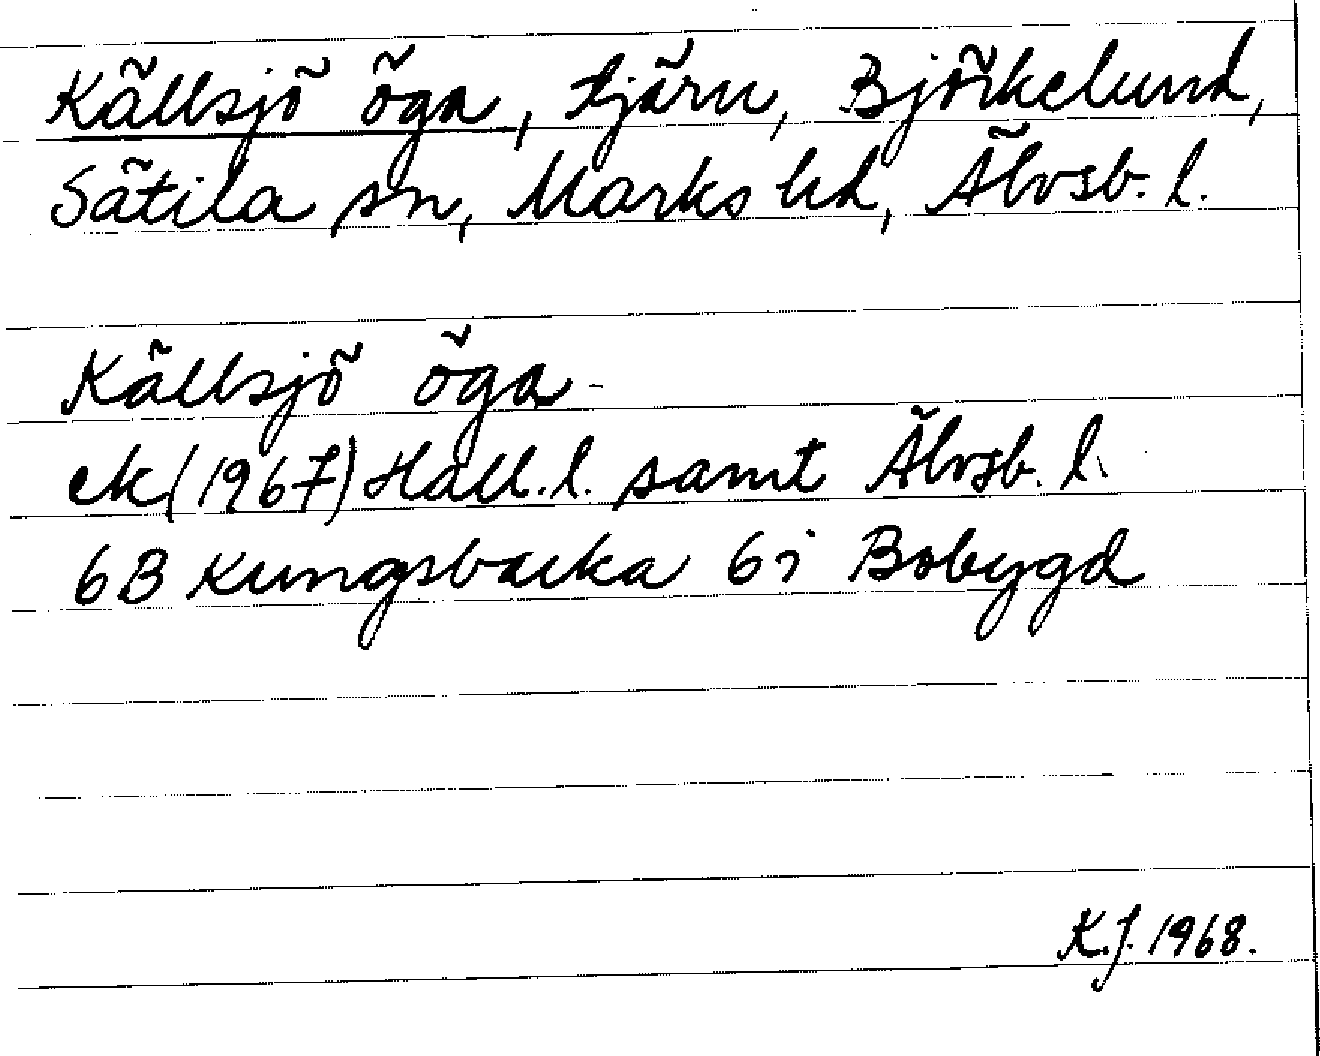 Källsjö öga, tjärn, Björkelund,
Sätila sn, Marks hd, Älvsb. l.
Källsjö öga -
ek (1967) Hall. l. samt Älvsb. l.
6B Kungsbacka 6i Bobygd
K.J. 1968.